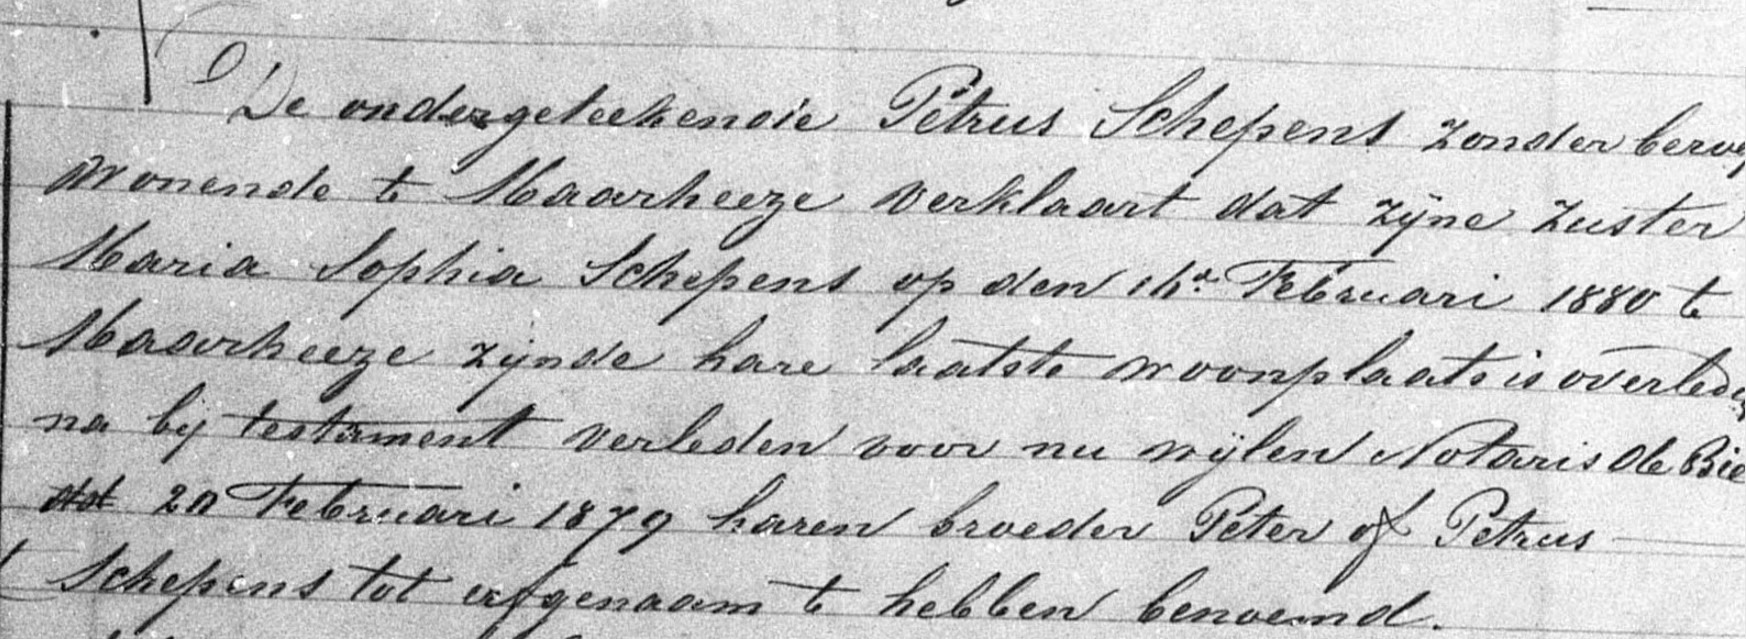 De ondergeteekende Petrus Schepens zonder beroep
wonende te Maarheeze verklaart dat zijne zuster
Maria Sophia Schepens op den 16n Februari 1880 te
Maarheeze zijnde hare laatste woonplaats is overleden
na bij testament verleden voor nu wijlen Notaris de Bie
dd 20 Februari 1879 haren broeder Peter of Petrus
Schepens tot erfgenaam te hebben benoemd.